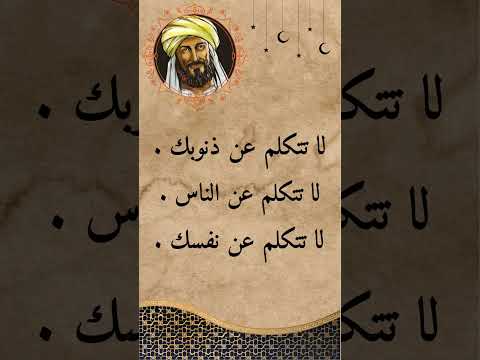 لا تتكلم عن ذنوبك .
لا تتكلم عن الناس .
لا تتكلم عن نفسك .